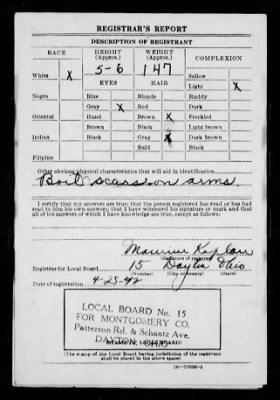 REGISTRAR'S REPORT
DESCRIPTION OF REGISTRANT
RACE HEIGHT (Approx.) WEIGHT (Approx.) COMPLEXION
5-6 147
White X EYES HAIR Sallow
Light X
Negro Blue Blonde Ruddy
Gray X Red Dark
Oriental Hazel Brown X Freckled
Brown Black Light brown
Indian Black Gray X Dark brown
Bald Black
Filipino
Other obvious physical characteristics that will aid in identification
Boil scars on arms.
I certify that my answers are true; that the person registered has read or has had
read to him his own answers; that I have witnessed his signature or mark and that
all of his answers of which I have knowledge are true, except as follows:
Maurine Kaplan
(Signature of registrar)
Registrar for Local Board 15 Dayton Ohio
(Number) (City or county) (State)
Date of registration 4-25-42
LOCAL BOARD No. 15
FOR MONTGOMERY CO.
Patterson Rd. & Schantz Ave.
DAYTON, OHIO
(STAMP OF LOCAL BOARD)
(The stamp of the Local Board having jurisdiction of the registrant
shall be placed in the above space)